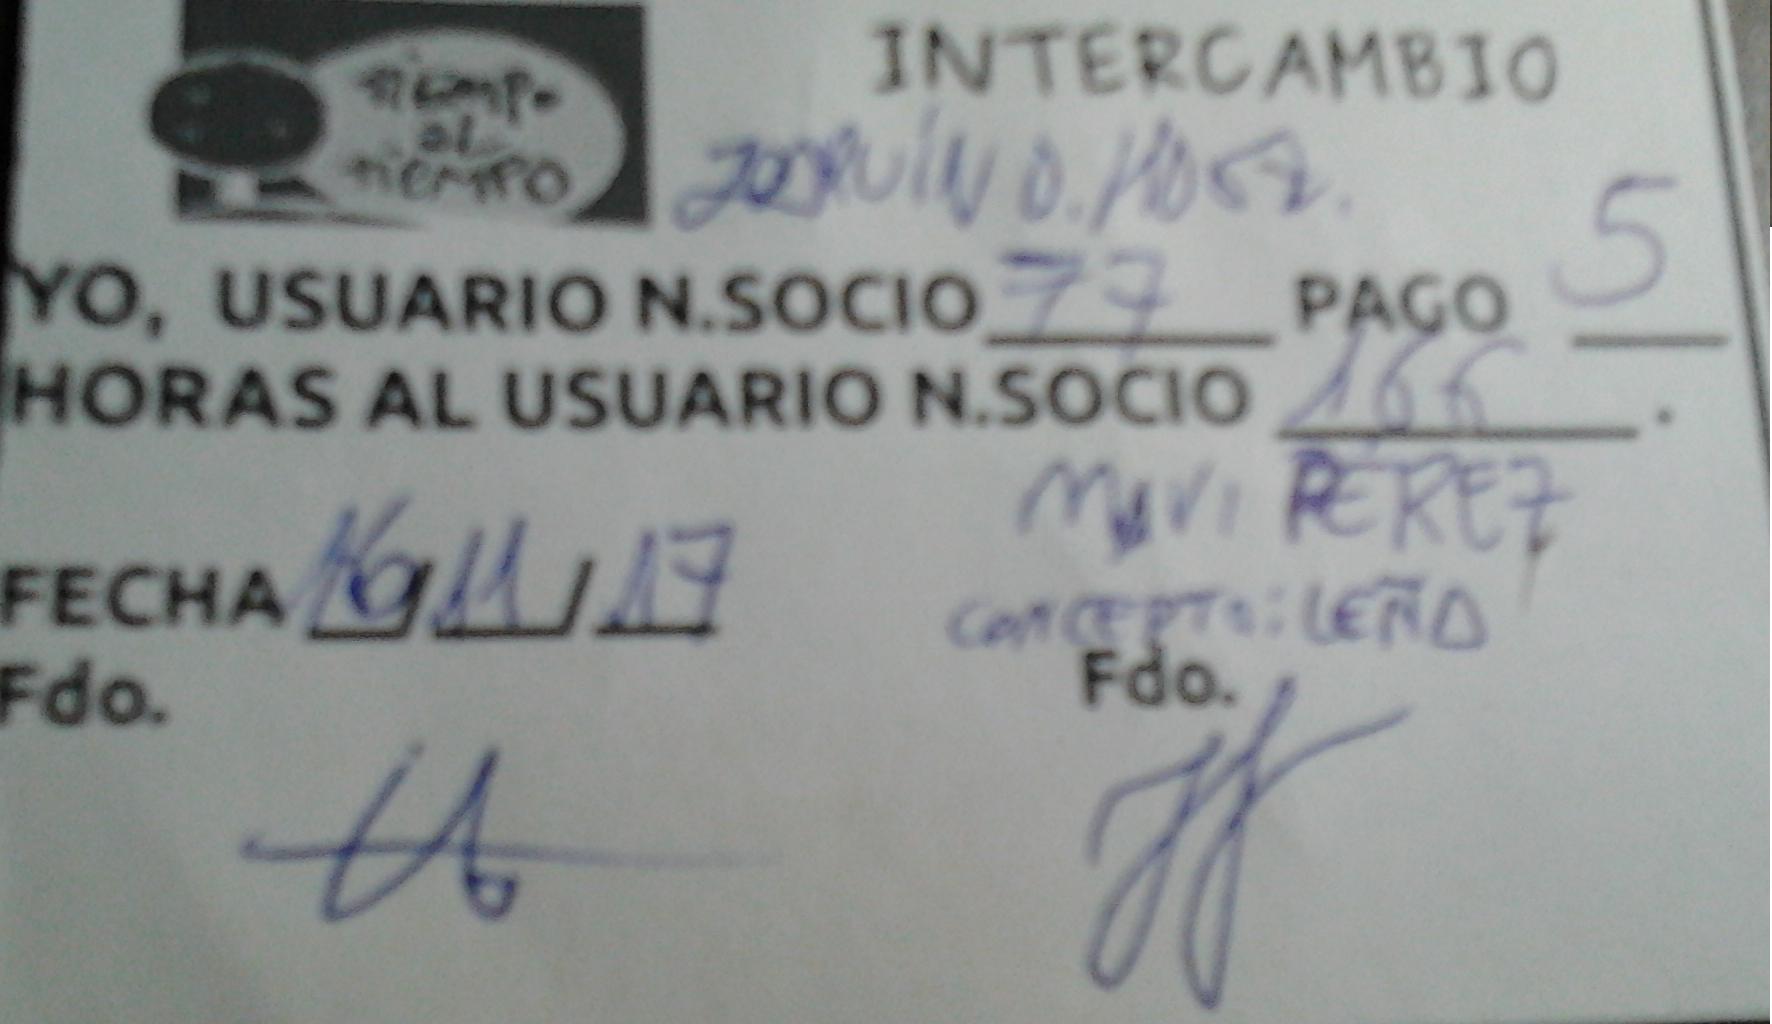 tiempo
al
tiempo
INTERCAMBIO
JOAQUÍN D.
YO, USUARIO N.SOCIO 77 PAGO 5
HORAS AL USUARIO N.SOCIO 166.
MAVI PÉREZ
FECHA 16/11/17
CONCEPTO: LEÑA
Fdo.
Fdo.